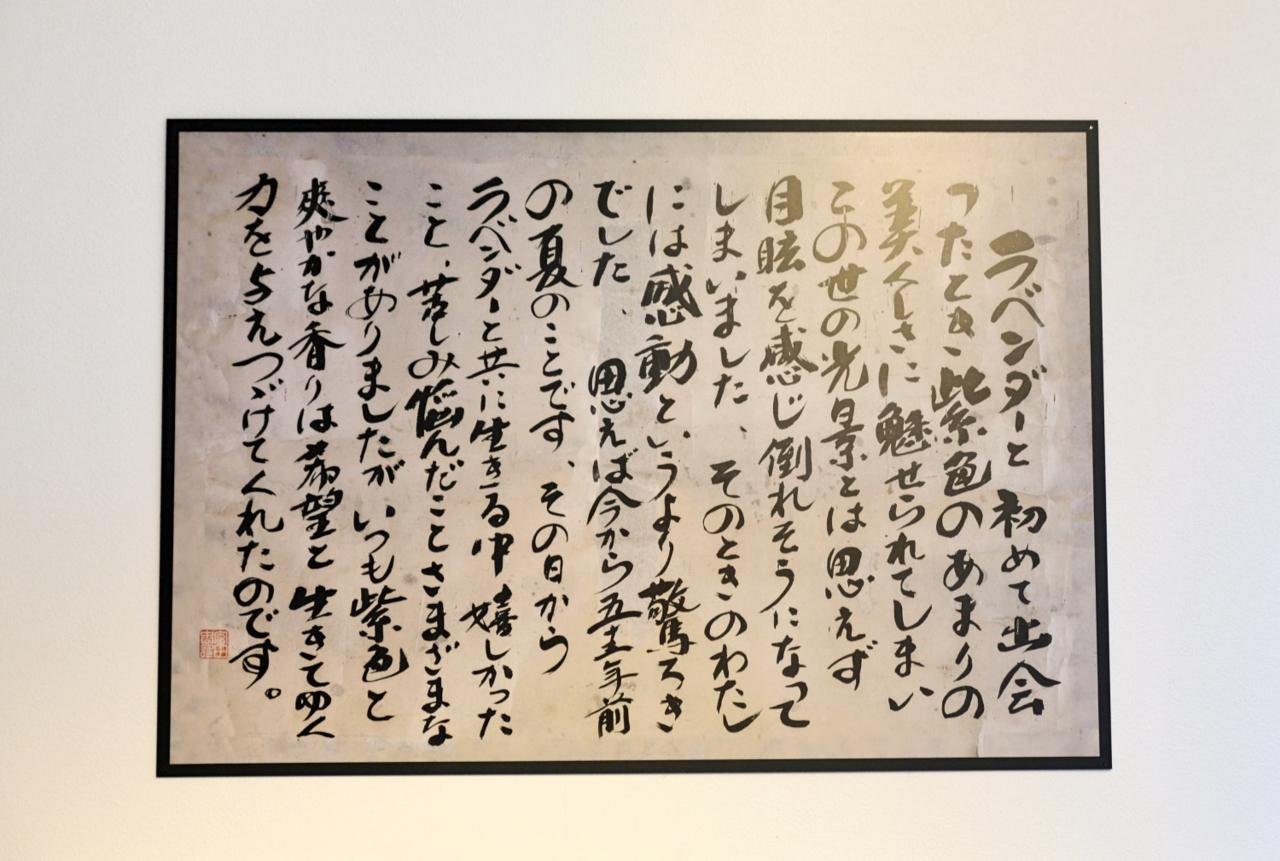 ラベンダーと初めて出会
ったとき、紫色のあまりの
美くしさに魅せられてしまい
この世の光景とは思えず
目眩を感じ倒れそうになって
しまいました、そのときのわたし
には感動というより驚ろき
でした、思えば今から五十年前
の夏のことです、その日から
ラベンダーと共に生きる中嬉しかった
こと、苦しみ悩んだことさまざまな
ことがありましたがいつも紫色と
爽やかな香りは希望と生きてゆく
力を与えつゞけてくれたのです。